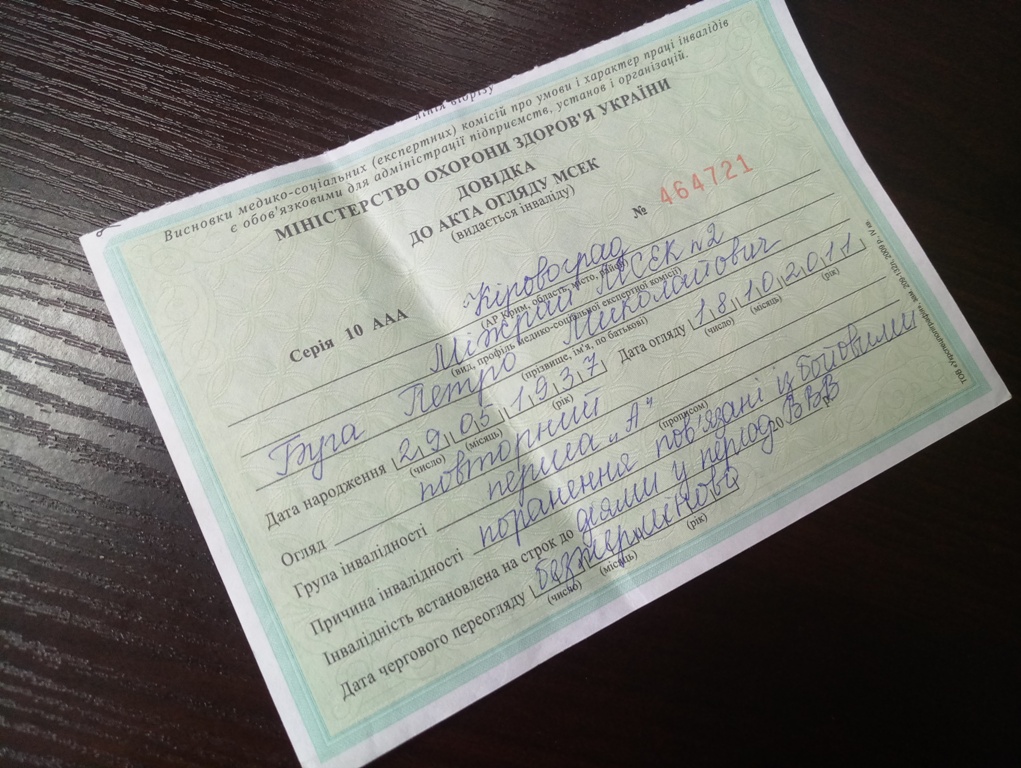 лінія відрізу
Висновки медико-соціальних (експертних) комісій про умови і характер праці інвалідів
є обов'язковими для адміністрації підприємств, установ і організацій.
МІНІСТЕРСТВО ОХОРОНИ ЗДОРОВ'Я УКРАЇНИ
ДОВІДКА
ДО АКТА ОГЛЯДУ МСЕК
(видається інваліду)
Серія 10 ААА № 464721
Кіровоград
(АР Крим, область, місто, район)
Міжрай МСЕК №2
(вид, профіль медико-соціальної експертної комісії)
Буга Петро Миколайович
(прізвище, ім'я, по батькові)
Дата народження 29 05 1937 Дата огляду 18 10 2011
(число) (місяць) (рік) (число) (місяць) (рік)
Огляд повторний
Група інвалідності перша „А"
(прописом)
Причина інвалідності поранення пов'язані із бойовими
Інвалідність встановлена на строк до діями у період ВВВ
Дата чергового переогляду безтерміново
(число) (місяць) (рік)